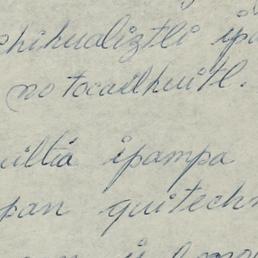 chihualiztli ipa
no tocailhuitl.
uiltia ipampa
pan quitech